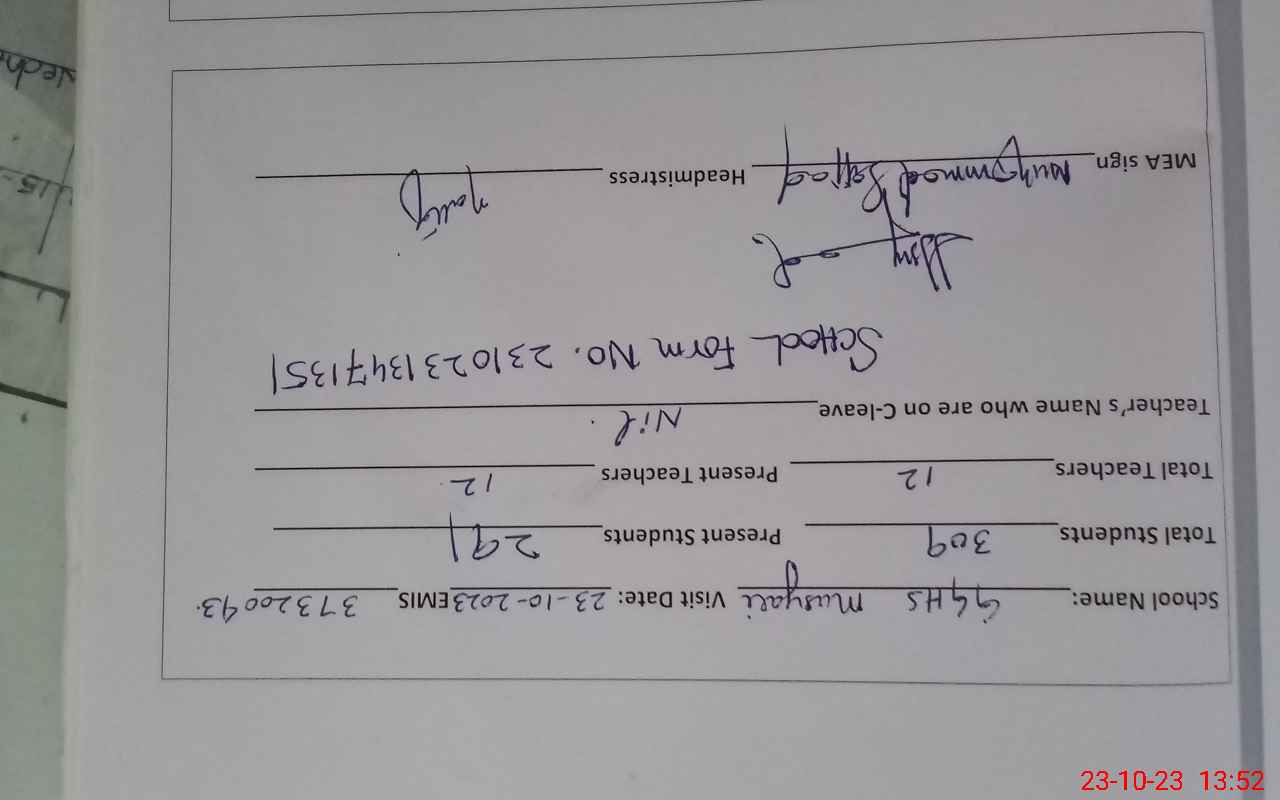 School Name: GGHS Musyali Visit Date: 23-10-2023 EMIS 37320093.
Total Students 309 Present Students 291
Total Teachers 12 Present Teachers 12
Teacher's Name who are on C-leave Nil.
School Form No. 23102313471351
MEA sign Muhammad Headmistress
23-10-23 13:52